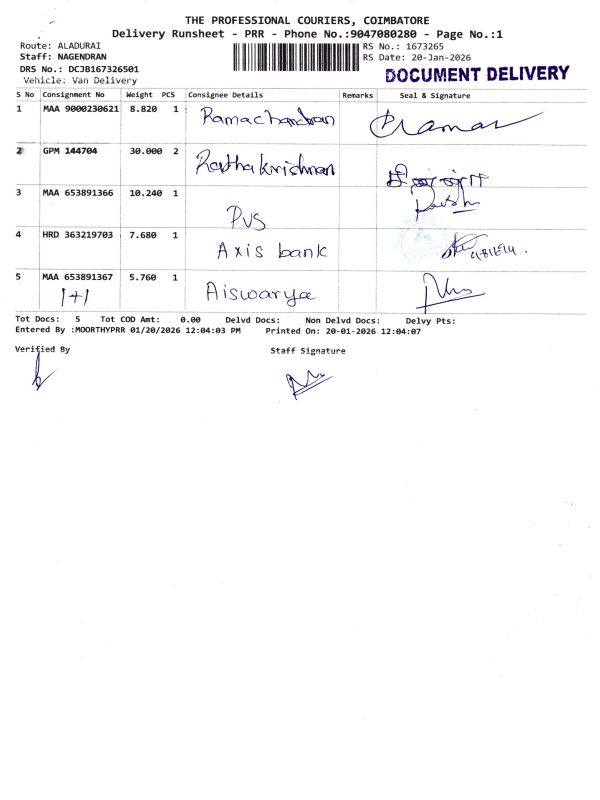 THE PROFESSIONAL COURIERS, COIMBATORE
Delivery Runsheet - PRR - Phone No.:9047080280 - Page No.:1
Route: ALADURAI
Staff: NAGENDRAN
DRS No.: DCJB167326501
Vehicle: Van Delivery
RS No.: 1673265
RS Date: 20-Jan-2026
DOCUMENT DELIVERY
S No Consignment No Weight PCS Consignee Details Remarks Seal & Signature
1 MAA 9000230621 8.820 1 Ramachandran
2 GPM 144704 30.000 2 Rathakrishnan
3 MAA 653891366 10.240 1 PVS
4 HRD 363219703 7.680 1 Axis bank
5 MAA 653891367 5.760 1 Aiswarya
1+1
Tot Docs: 5 Tot COD Amt: 0.00 Delvd Docs: Non Delvd Docs: Delvy Pts:
Entered By :MOORTHYPRR 01/20/2026 12:04:03 PM Printed On: 20-01-2026 12:04:07
Verified By Staff Signature